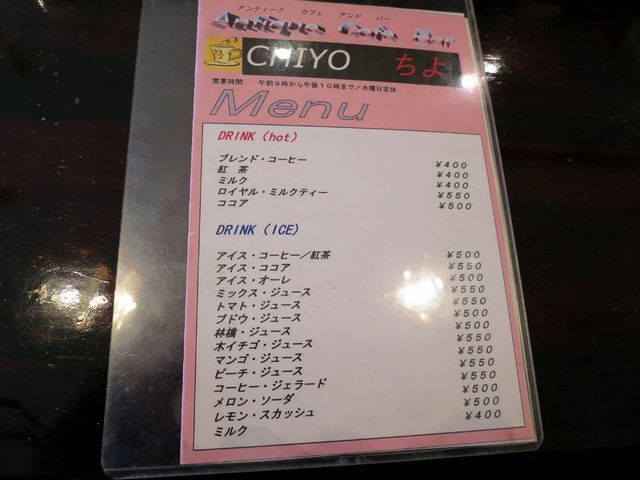 アンティーク カフェ アンド バー
Antique Cafe Bar
CHIYO ちよ
営業時間 午前9時から午後10時まで/水曜日定休
Menu
DRINK (hot)
ブレンド・コーヒー ¥400
紅 茶 ¥400
ミルク ¥400
ロイヤル・ミルクティー ¥550
ココア ¥500
DRINK (ICE)
アイス・コーヒー/紅茶 ¥500
アイス・ココア ¥550
アイス・オーレ ¥550
ミックス・ジュース ¥550
トマト・ジュース ¥550
ブドウ・ジュース ¥500
林檎・ジュース ¥500
木イチゴ・ジュース ¥550
マンゴ・ジュース ¥550
ピーチ・ジュース ¥550
コーヒー・ジェラード ¥550
メロン・ソーダ ¥500
レモン・スカッシュ ¥500
ミルク ¥400